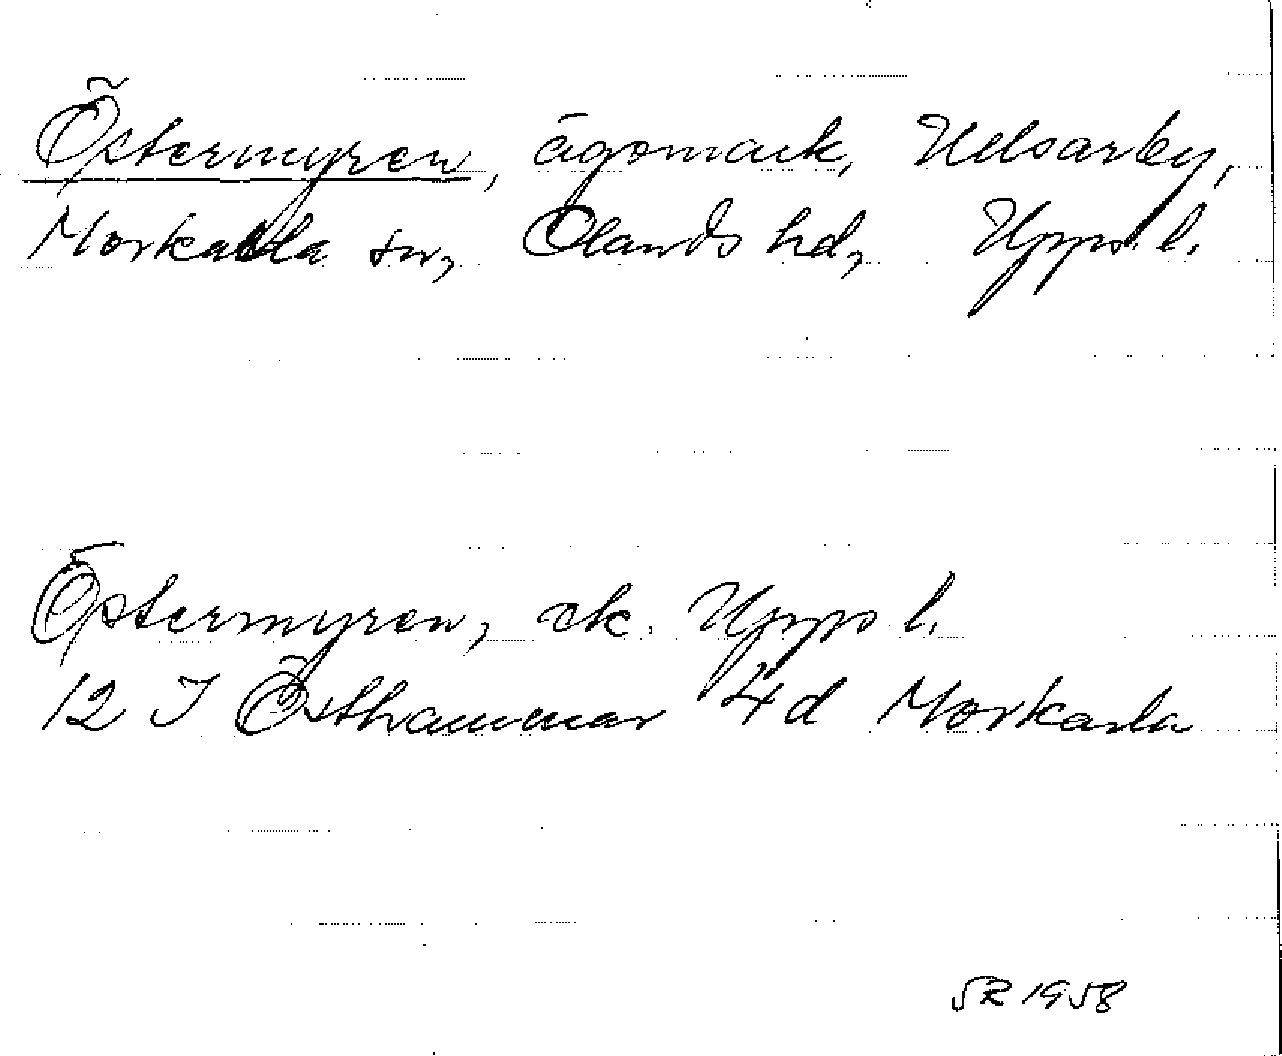 Östermyren, ägomark, Helsarby,
Morkarla sn, Olands hd, Upps. l.
Östermyren, ek. Upps l.
12 I Östhammar 4d Morkarla
SR 1958